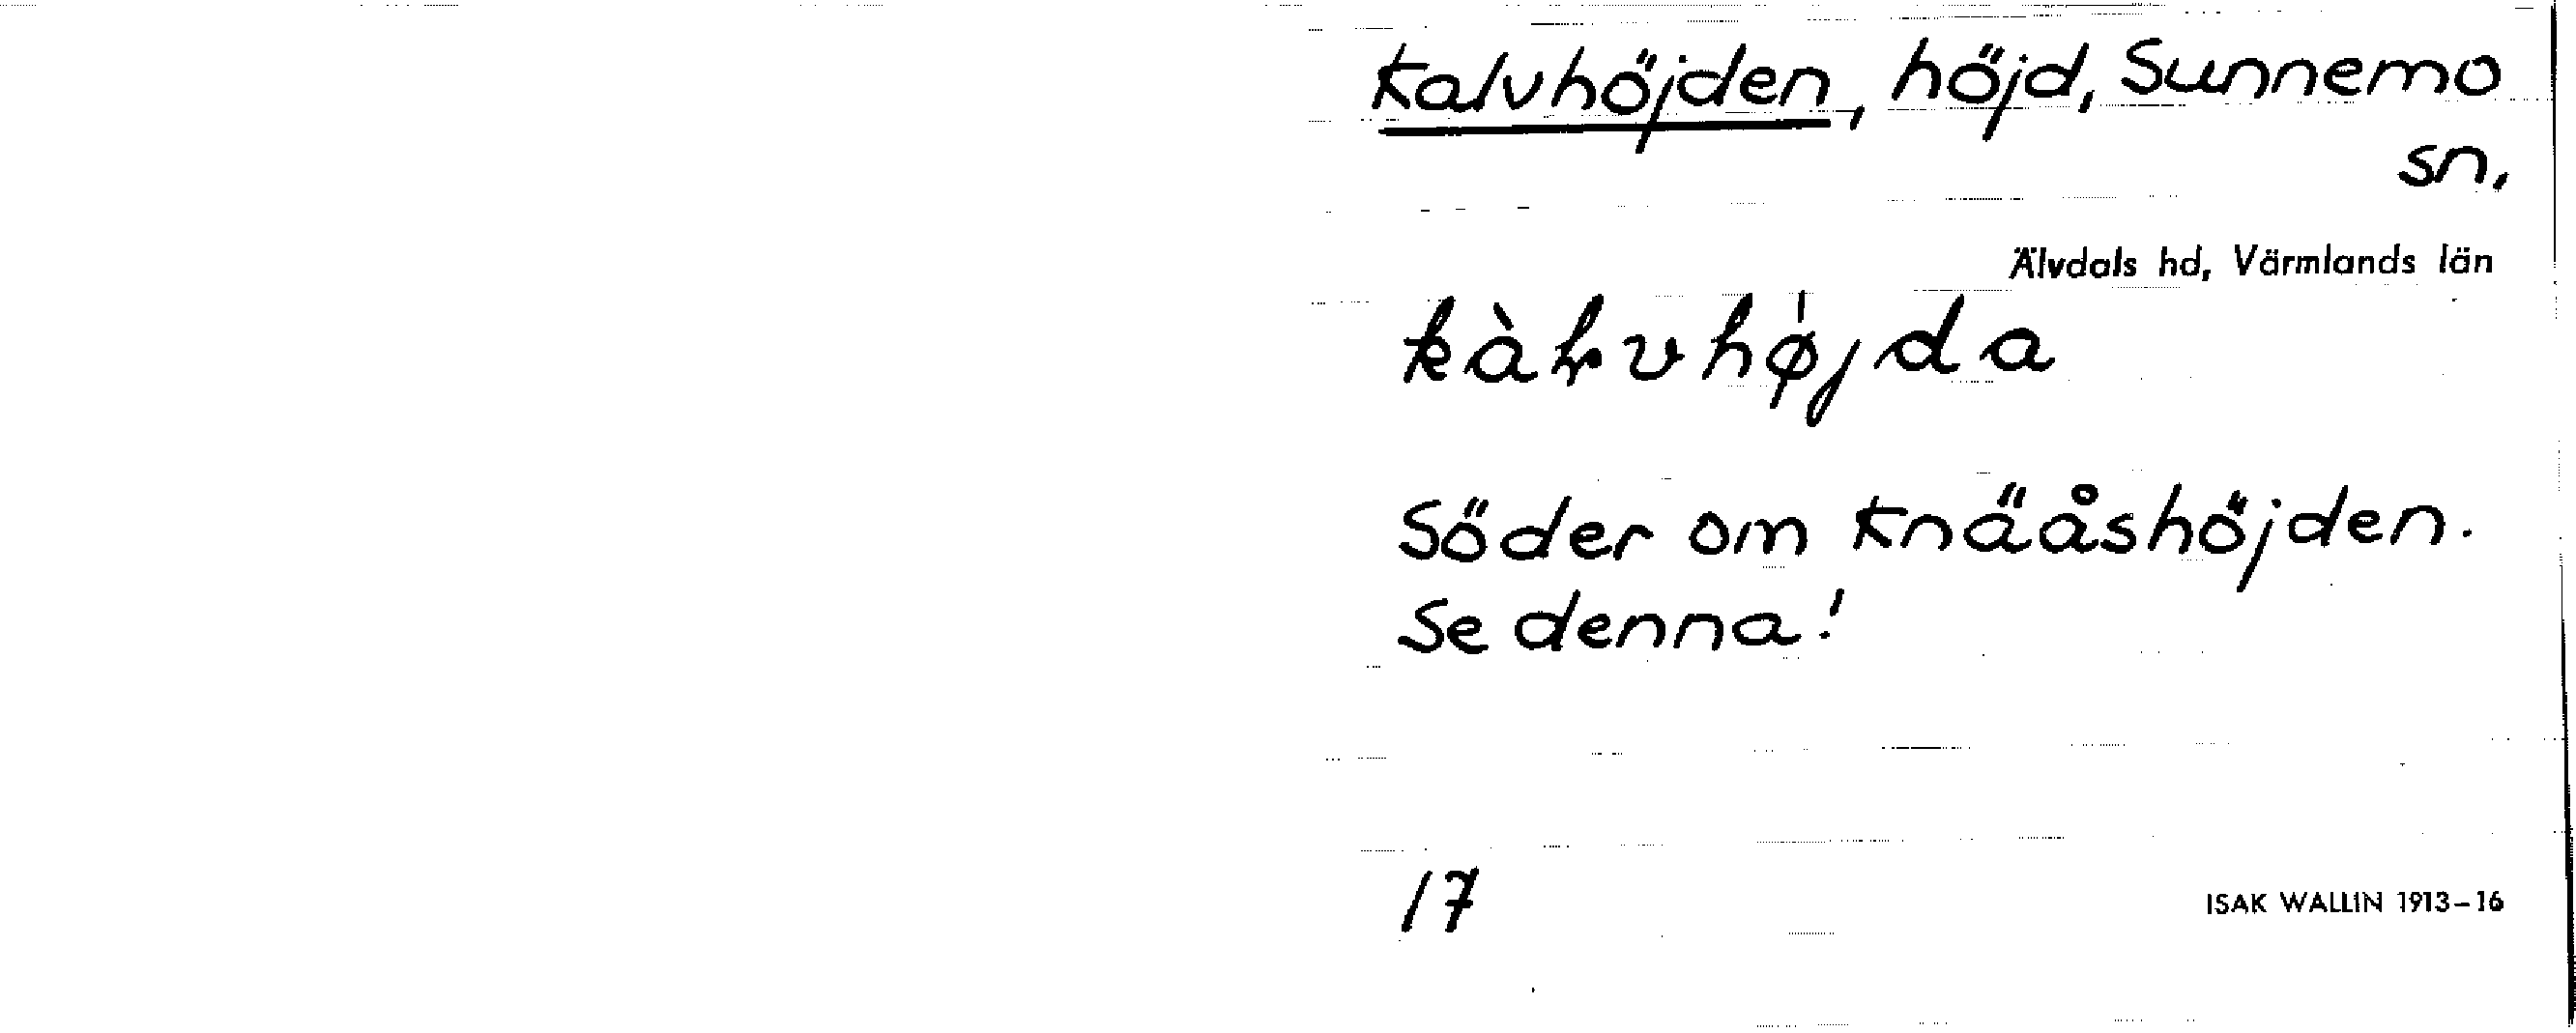 Kalvhöjden, höjd, Sunnemo
sn,
Älvdals hd, Värmlands län
kàɫvhø̍jda
Söder om Knäåshöjden.
Se denna!
17
ISAK WALLIN 1913–16